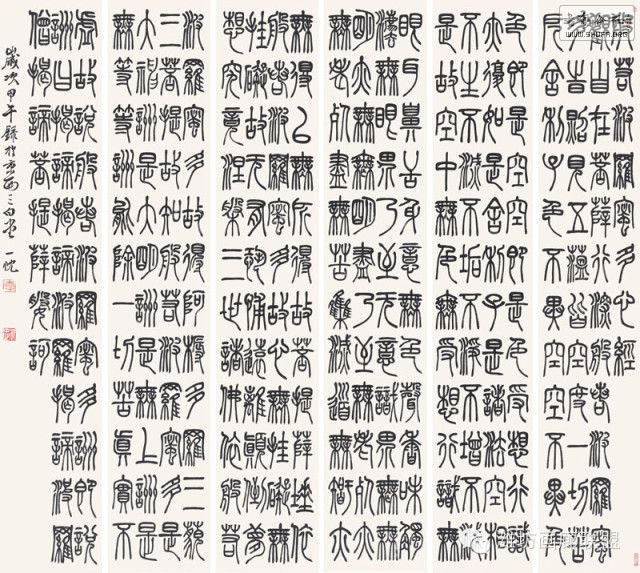 般若波羅蜜多心經
觀自在菩薩行深般若波羅蜜
多時照見五蘊皆空度一切苦
厄舍利子色不異空空不異色
色即是空空即是色受想行識
亦復如是舍利子是諸法空相
不生不滅不垢不淨不增不減
是故空中無色無受想行識無
眼耳鼻舌身意無色聲香味觸
法無眼界乃至無意識界無無
明亦無無明盡乃至無老死亦
無老死盡無苦集滅道無智亦
無得以無所得故菩提薩埵依
般若波羅蜜多故心無挂礙無
挂礙故無有恐怖遠離顛倒夢
想究竟涅槃三世諸佛依般若
波羅蜜多故得阿耨多羅三藐
三菩提故知般若波羅蜜多是
大神詶是大明詶是無上詶是
無等等詶能除一切苦真實不
虛故說般若波羅蜜多詶即說
詶曰揭諦揭諦波羅揭諦波羅
僧揭諦菩提薩婆訶
歲次甲午錄於京西三